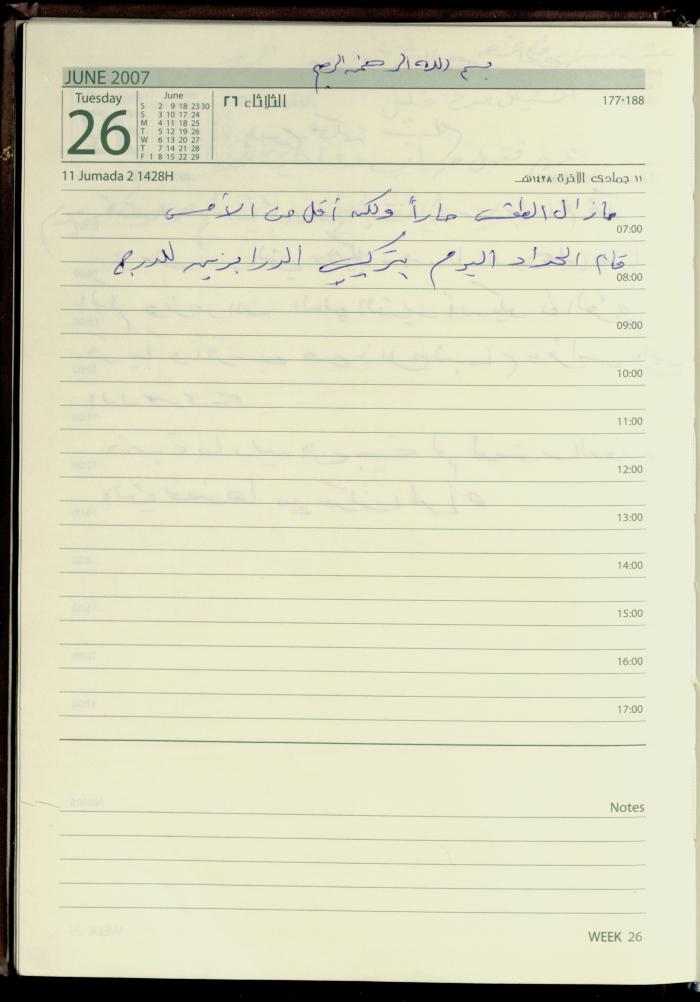 بسم الله الرحمن الرحيم
JUNE 2007
Tuesday
26
June
S 2 9 18 23 30
S 3 10 17 24
M 4 11 18 25
T 5 12 19 26
W 6 13 20 27
T 7 14 21 28
F 1 8 15 22 29
الثلاثاء ٢٦
177-188
11 Jumada 2 1428H
١١ جمادى الآخرة ١٤٢٨هـ
مازال الطقس حاراً ولكنه أقل من الأمس
07:00
قام الحداد اليوم بتركيب الدرابزين للدرج
08:00
09:00
10:00
11:00
12:00
13:00
14:00
15:00
16:00
17:00
Notes
WEEK 26